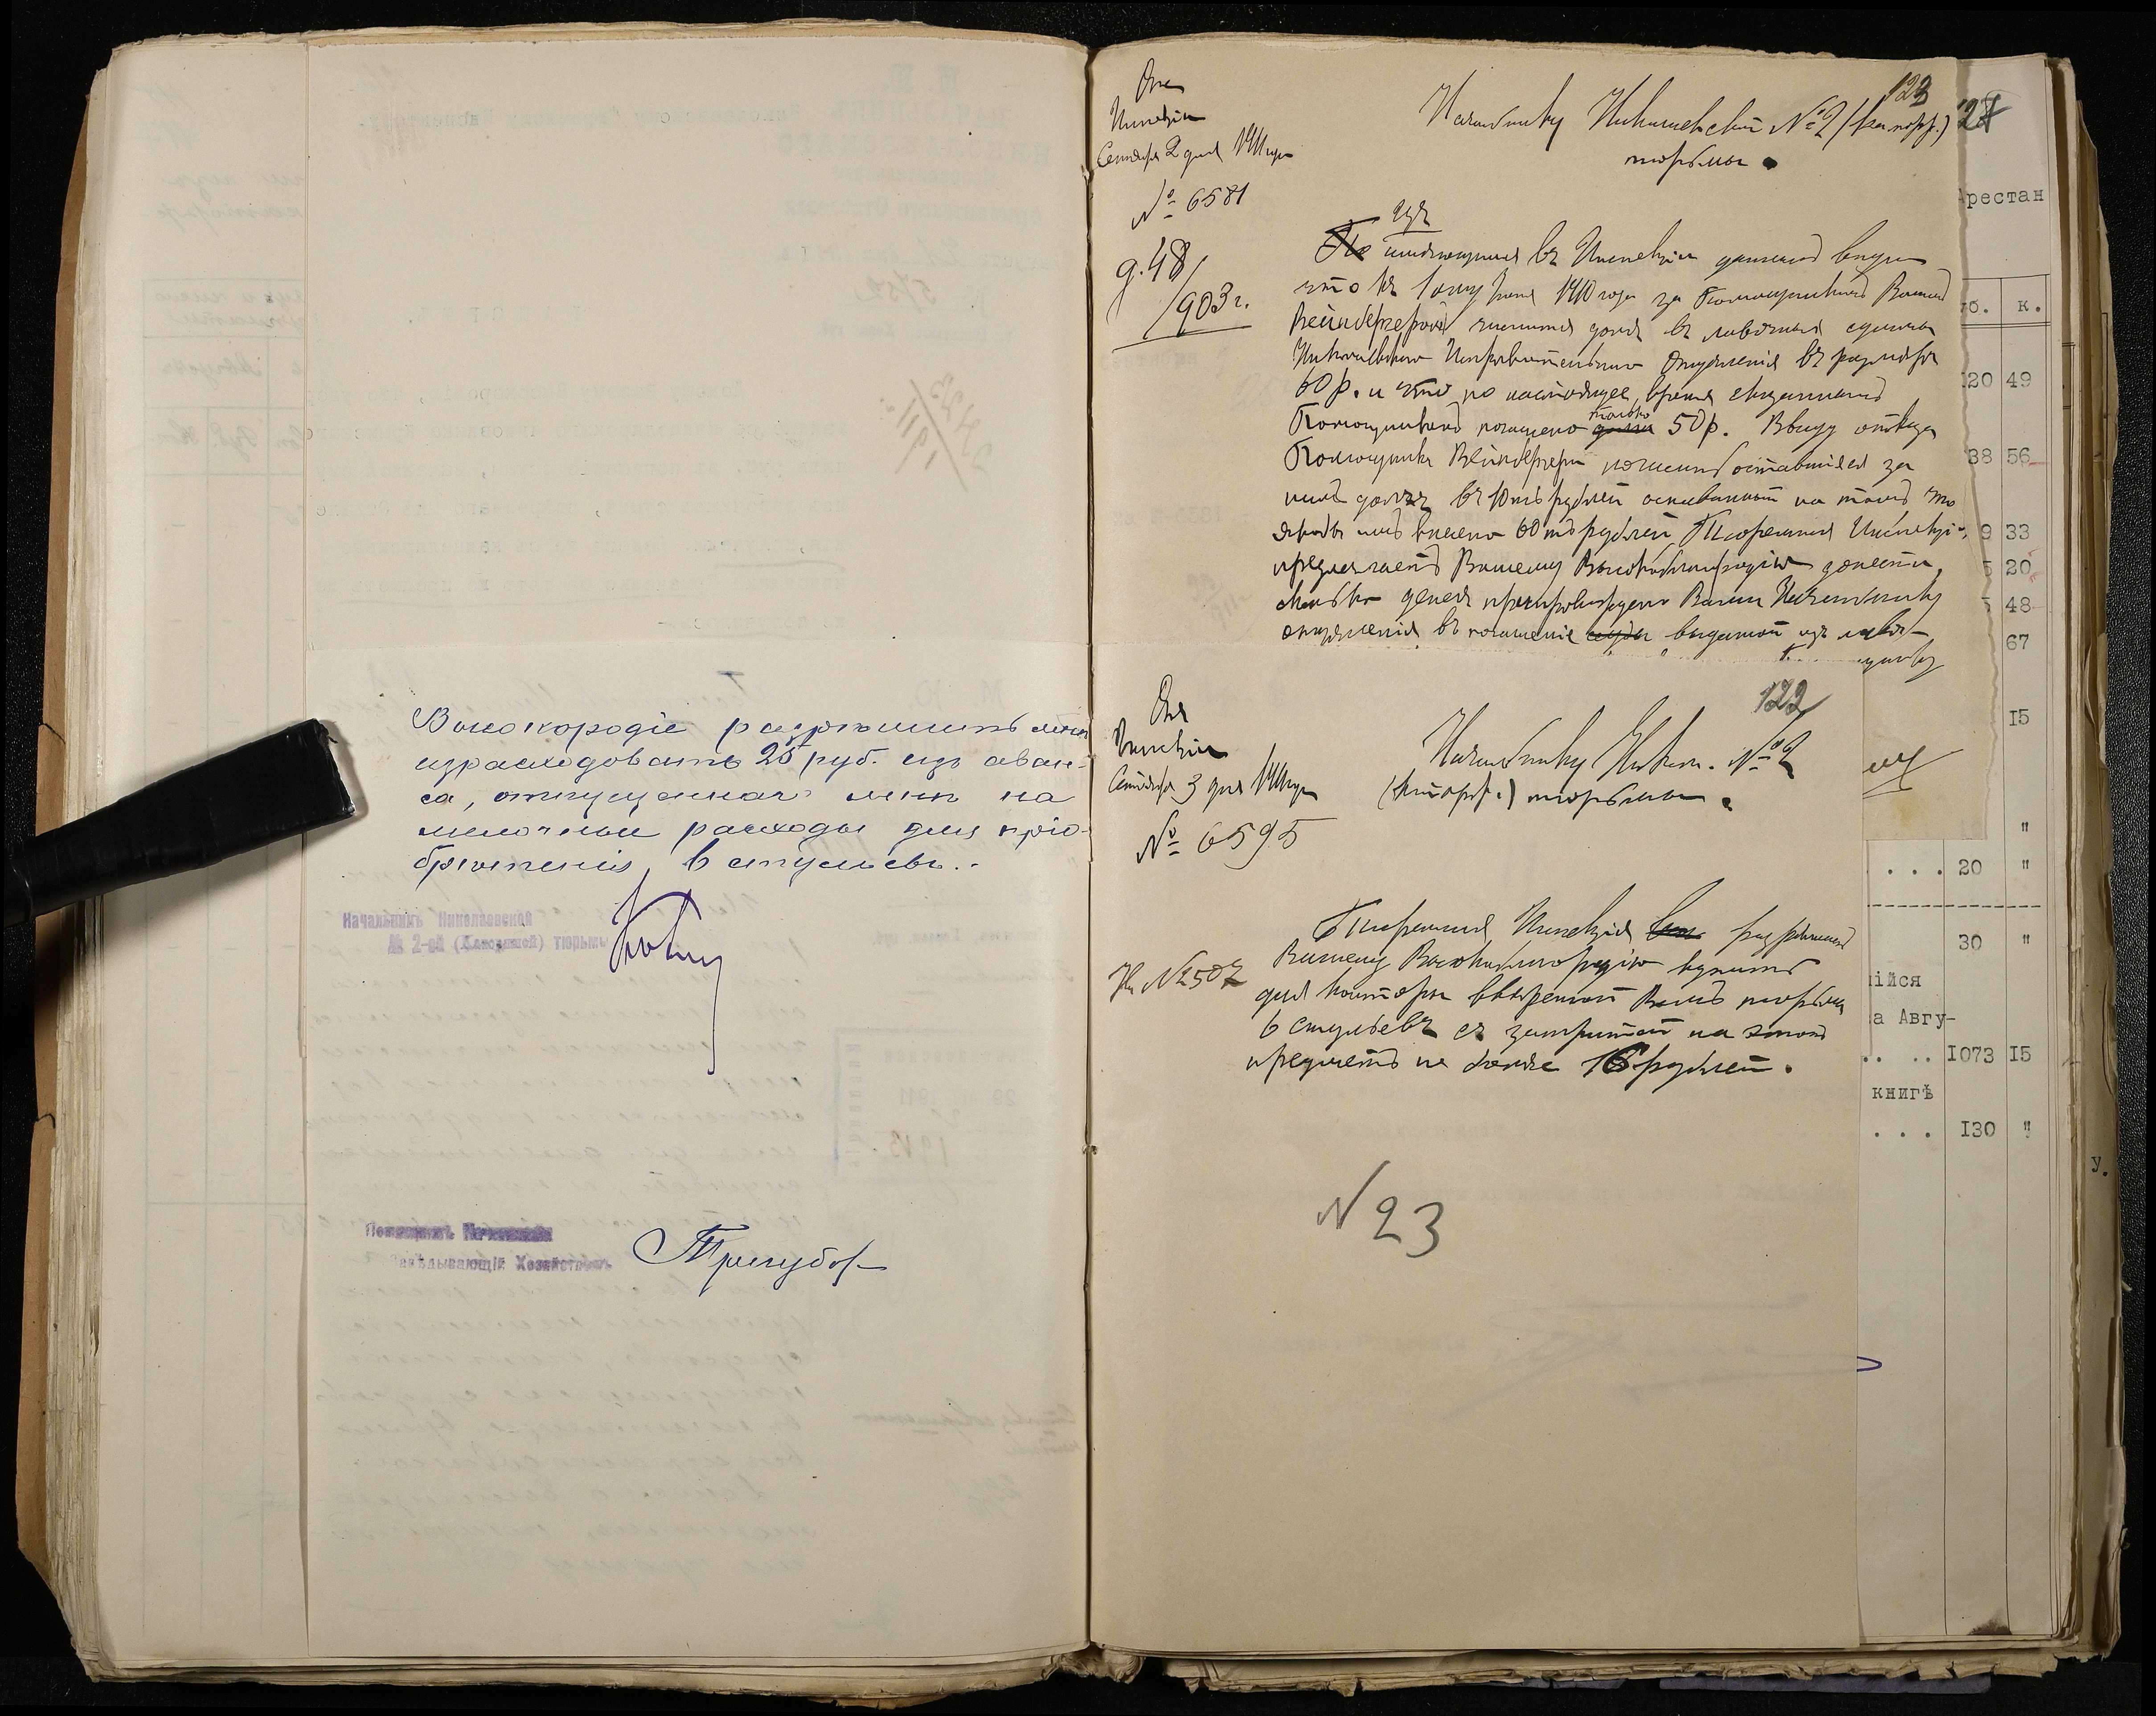 Высокородіе разрѣшить мнѣ
израсходовать 25 руб. изъ аван-
са, отпущеннаго мнѣ на
мелочные расходы для пріо-
брѣтенія 6 стульевъ.
Начальникъ Николаевской
№ 2-ой (Каторжной) тюрьмы
Помощникъ Начальника
Завѣдывающій Хозяйствомъ
123
Отд.
Инспекціи
Сентября 2 дня 1911 года
№ 6581
д. 48/903 г.
Начальнику Николаевской № 2 (каторж.)
тюрьмы.
Изъ
имѣющихся въ Инспекціи данныхъ видно
что къ 1 ому 1910 года за Помощникомъ Вашимъ
Вейнбергеромъ числится долгъ въ лавочныя суммы
Николаевскаго Исправительнаго Отдѣленія въ размѣрѣ
60 р. и что по настоящее время сказаннымъ
Помощникомъ погашено только 50 р. Ввиду отказа
Помощника Вейнбергера погасить оставшійся за
нимъ долгъ въ 10 ть рублей основанный на томъ что
якобы имъ внесено 60 тъ рублей Тюремная Инспекція
предлагаетъ Вашему Высокоблагородію донести,
сколько денегъ препровождено Вами Начальнику
отдѣленія въ погашеніе ссуды выданной изъ лавоч-
122
Отд.
Инспекціи
Сентября 3 дня 1911 года
№ 6595
Начальнику Никол. № 2
(каторж.) тюрьмы.
На № 2507
Тюремная Инспекція разрѣшаетъ
Вашему Высокоблагородію купить
для конторы ввѣренной Вамъ тюрьмы
6 стульевъ съ затратой на этотъ
предметъ не болѣе 16 рублей.
N 23
Арестан
к.
120 49
38 56
9 33
5 20
5 48
67
15
"
. . . 20 "
30 "
ійся
а Авгу-
.. .. 1073 15
книгѣ
. . . 130 "
у.